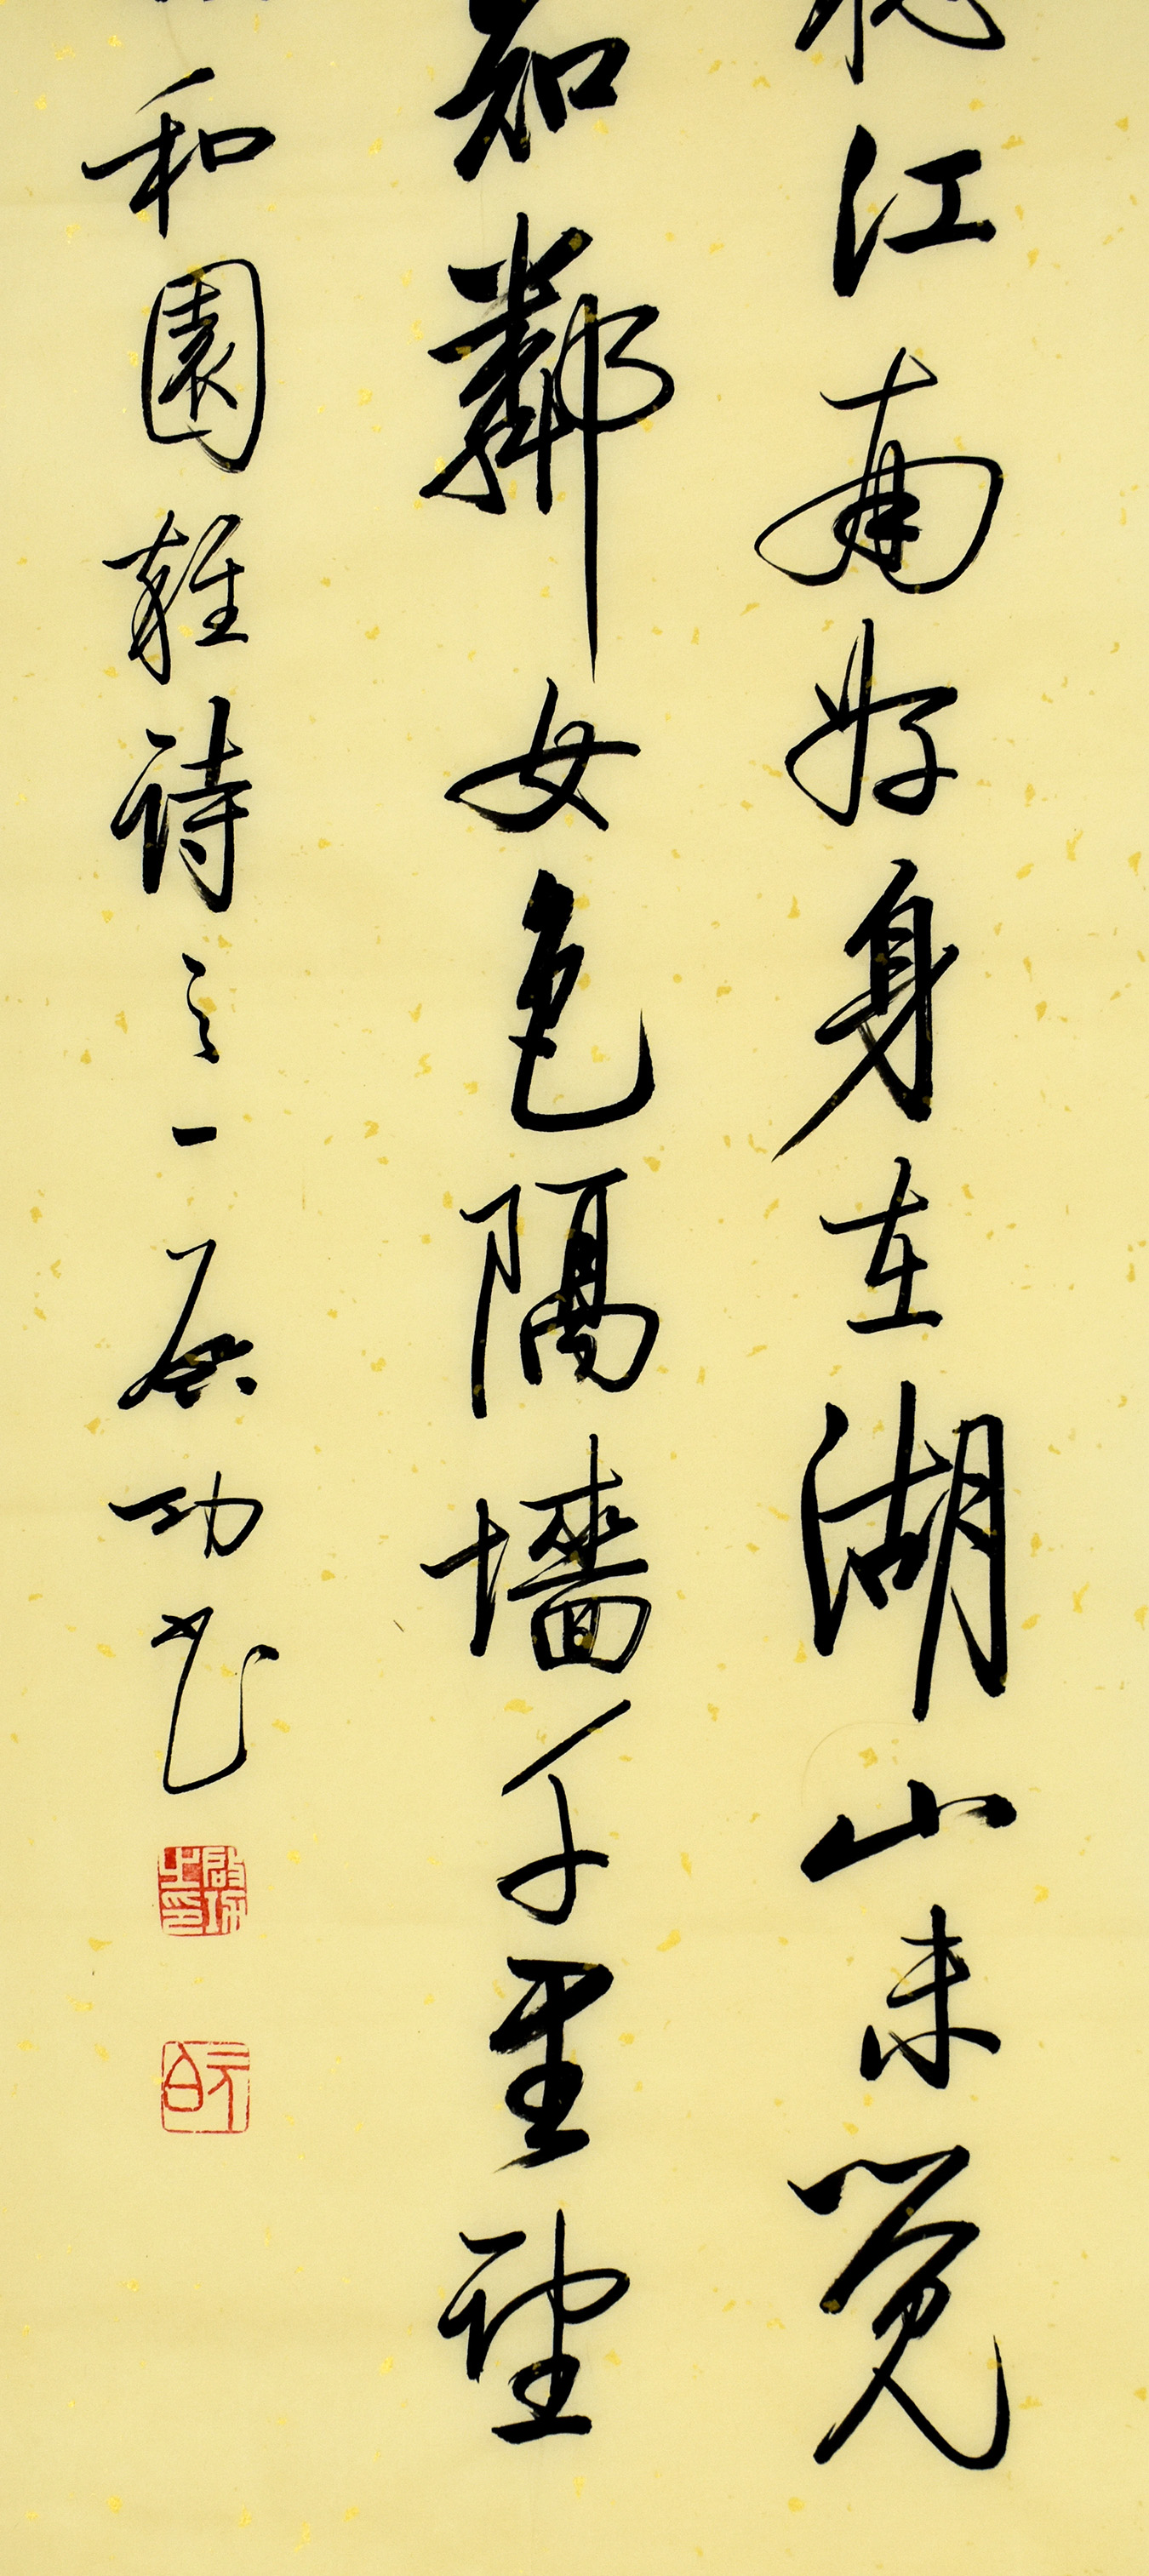 江南好身在湖山未觉
知鄰女色隔墻千里望
和園雜詩之一 启功书
啟功之印
元白